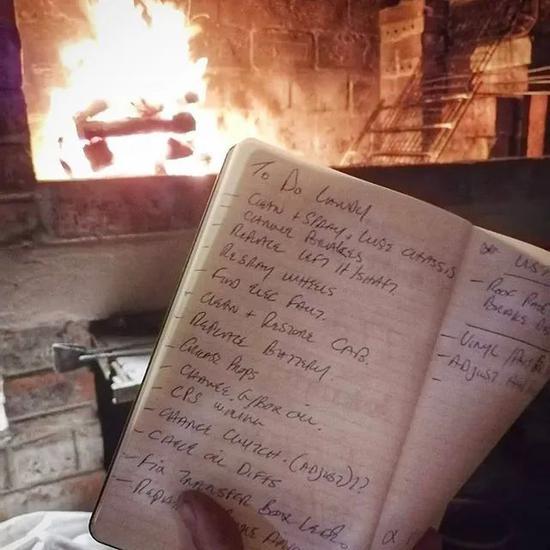 To Do Landy
- Clean + Spray + Lube Chassis
- Change Brakes
- Replace left H/Shaft
- Respray wheels
- Find elec fault.
- Clean + Restore Cab.
- Replace Battery.
- Grease Props
- Change G/Box oil.
- CPS wiring
- Change Clutch. (Adjust)??
- Check oil Diffs
- Fix Transfer Box Leaks
- Brake
- Roof
Brake
- Vinyl
- Adjust
-